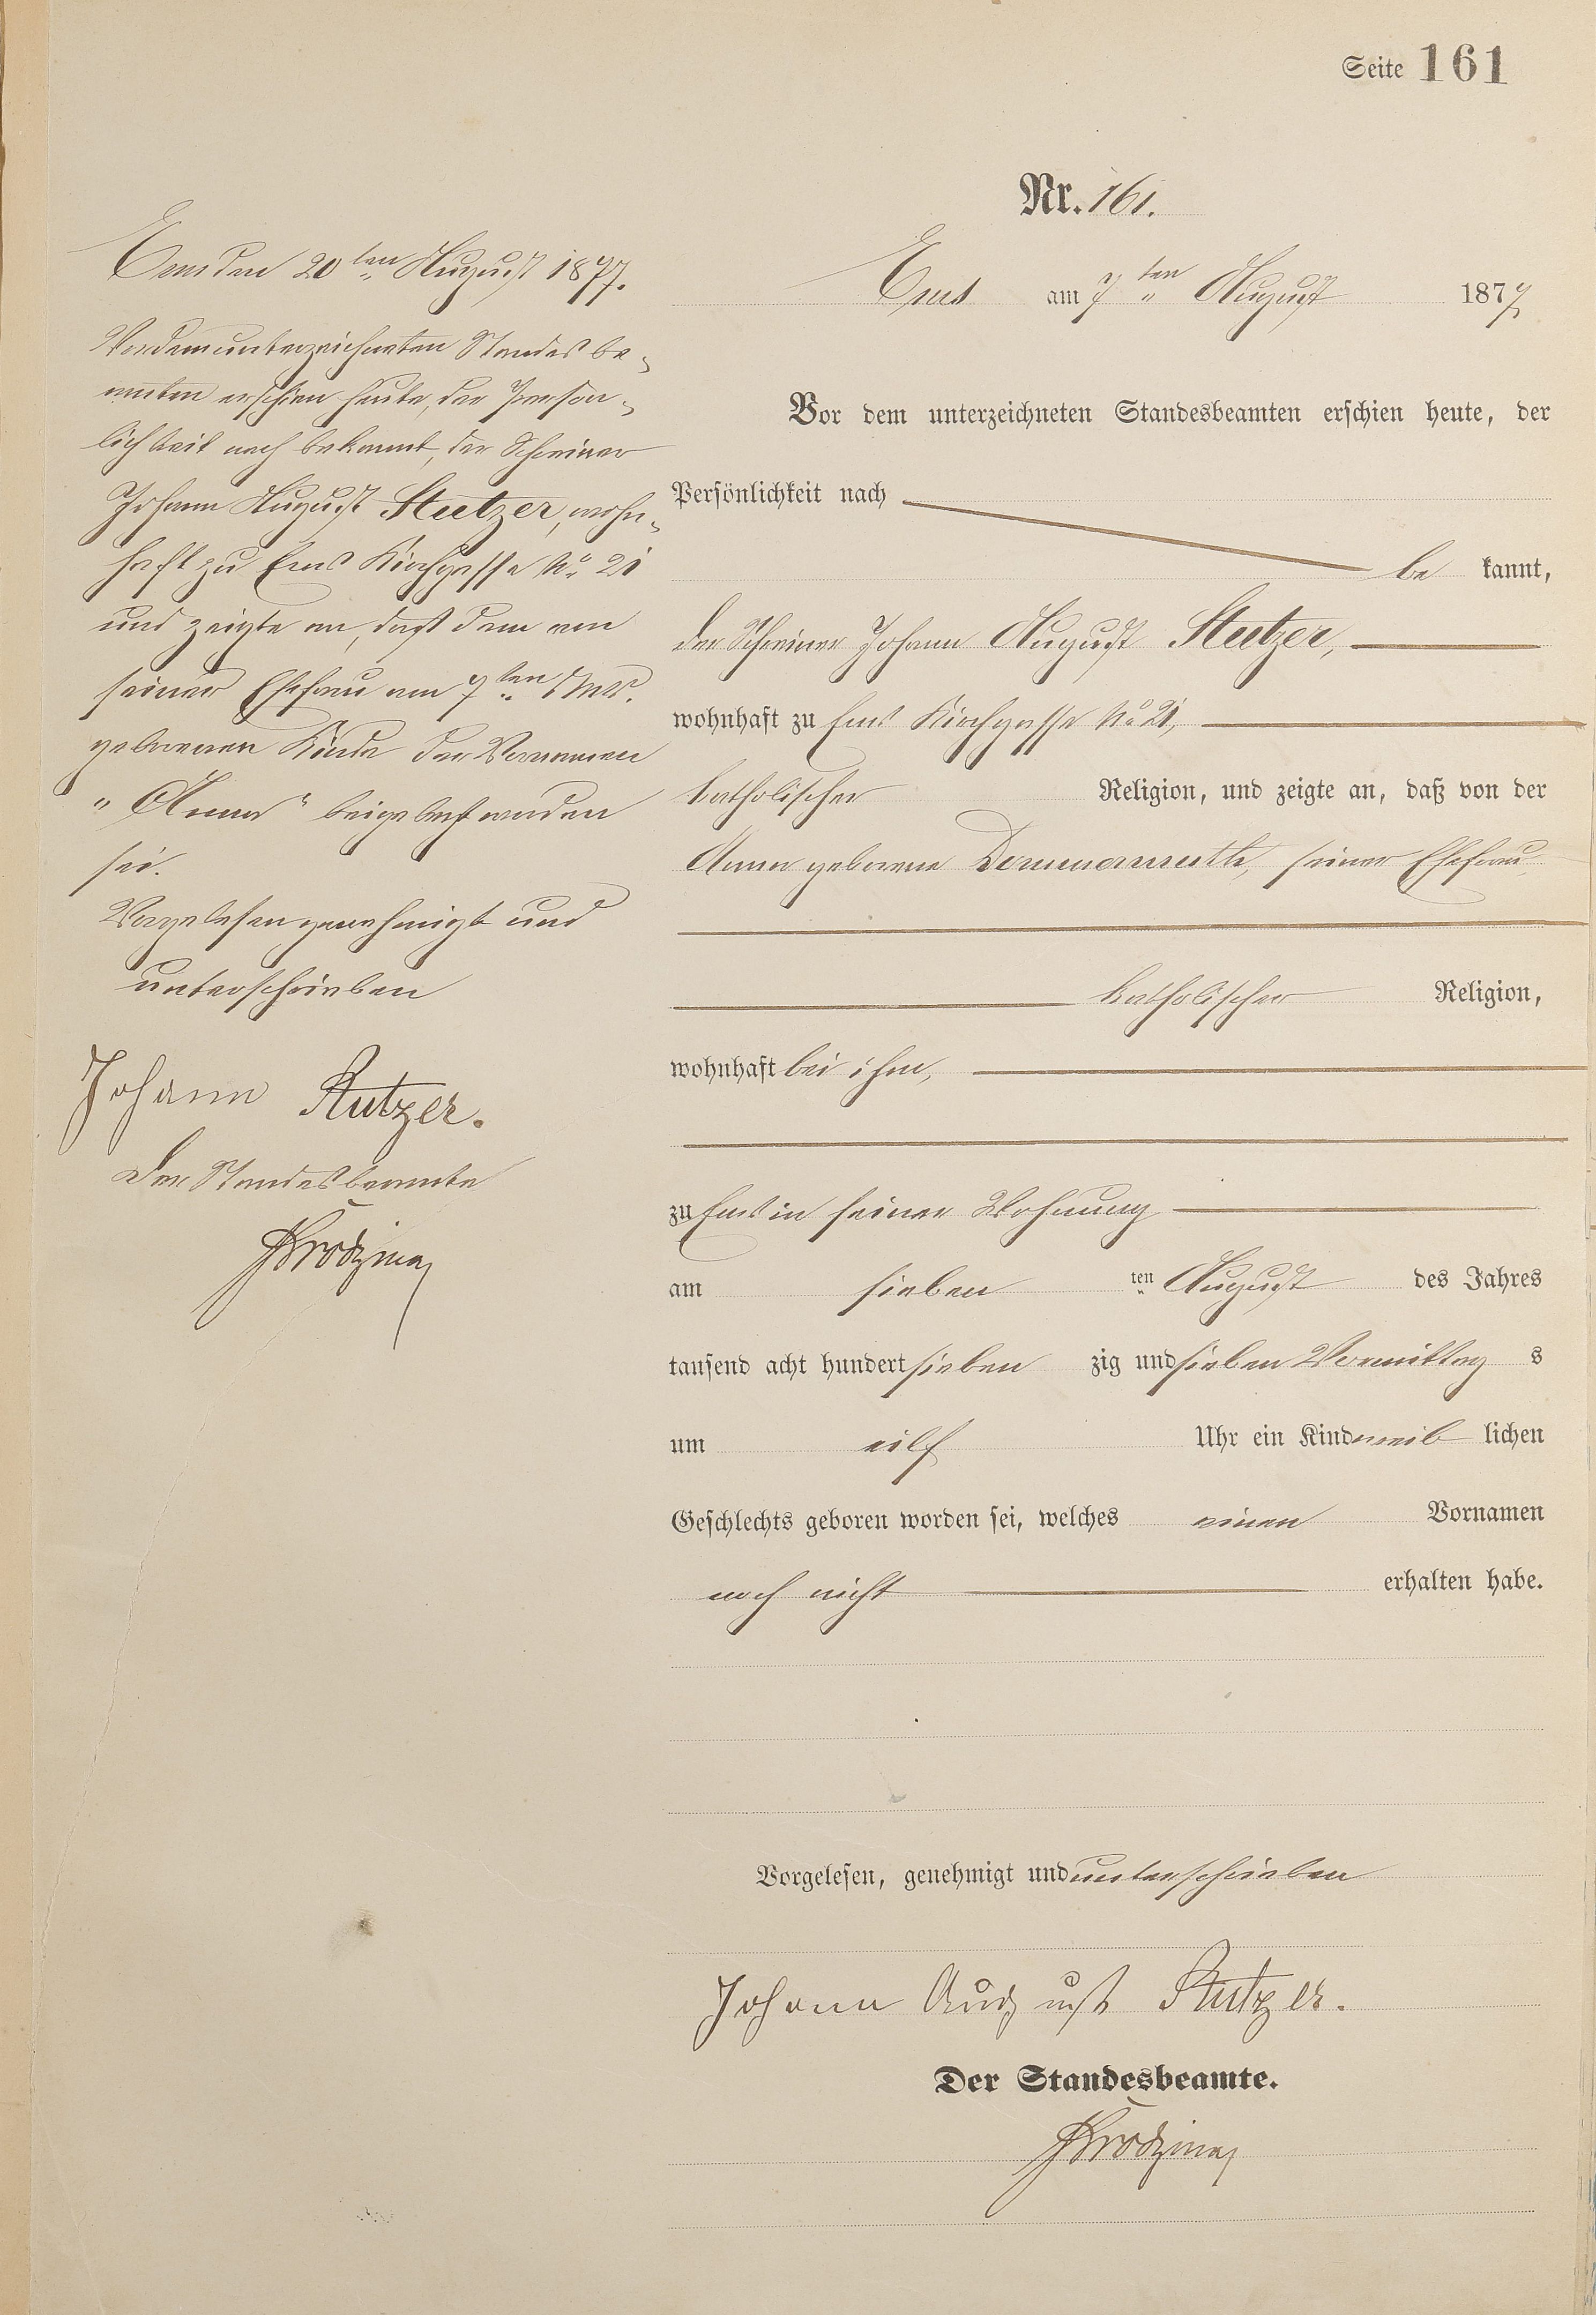 Seite 161
Nr. 161.
Ems den 20ten August 1877.
Vor dem unterzeichneten Standesbe-
amten erschien heute, der Persön-
lichkeit nach bekannt, der Schreiner
Johann August Stutzer, wohn-
haft zu Ems Kirchgasse No 21
und zeigte an, daß dem von
seiner Ehefrau am 7ten d. Mts.
geborenen Kinde der Vornamen
"Anna" beigelegt worden
sei.
Vorgelesen genehmigt und
unterschrieben
Johann Stutzer.
Der Standesbeamte
Ems am 7ten August 1877
Vor dem unterzeichneten Standesbeamten erschien heute, der
Persönlichkeit nach
be kannt,
der Schreiner Johann August Stutzer,
wohnhaft zu Ems Kirchgasse No 21,
katholischer Religion, und zeigte an, daß von der
Anna geborene Dommermuth, seiner Ehefrau
katholischer Religion,
wohnhaft bei ihm,
zu Ems in seiner Wohnung
am sieben ten August des Jahres
tausend acht hundert sieben zig und sieben Vormittag s
um eilf Uhr ein Kind weib lichen
Geschlechts geboren worden sei, welches einen Vornamen
noch nicht erhalten habe.
Vorgelesen, genehmigt und unterschrieben
Johann August Stutzer.
Der Standesbeamte.